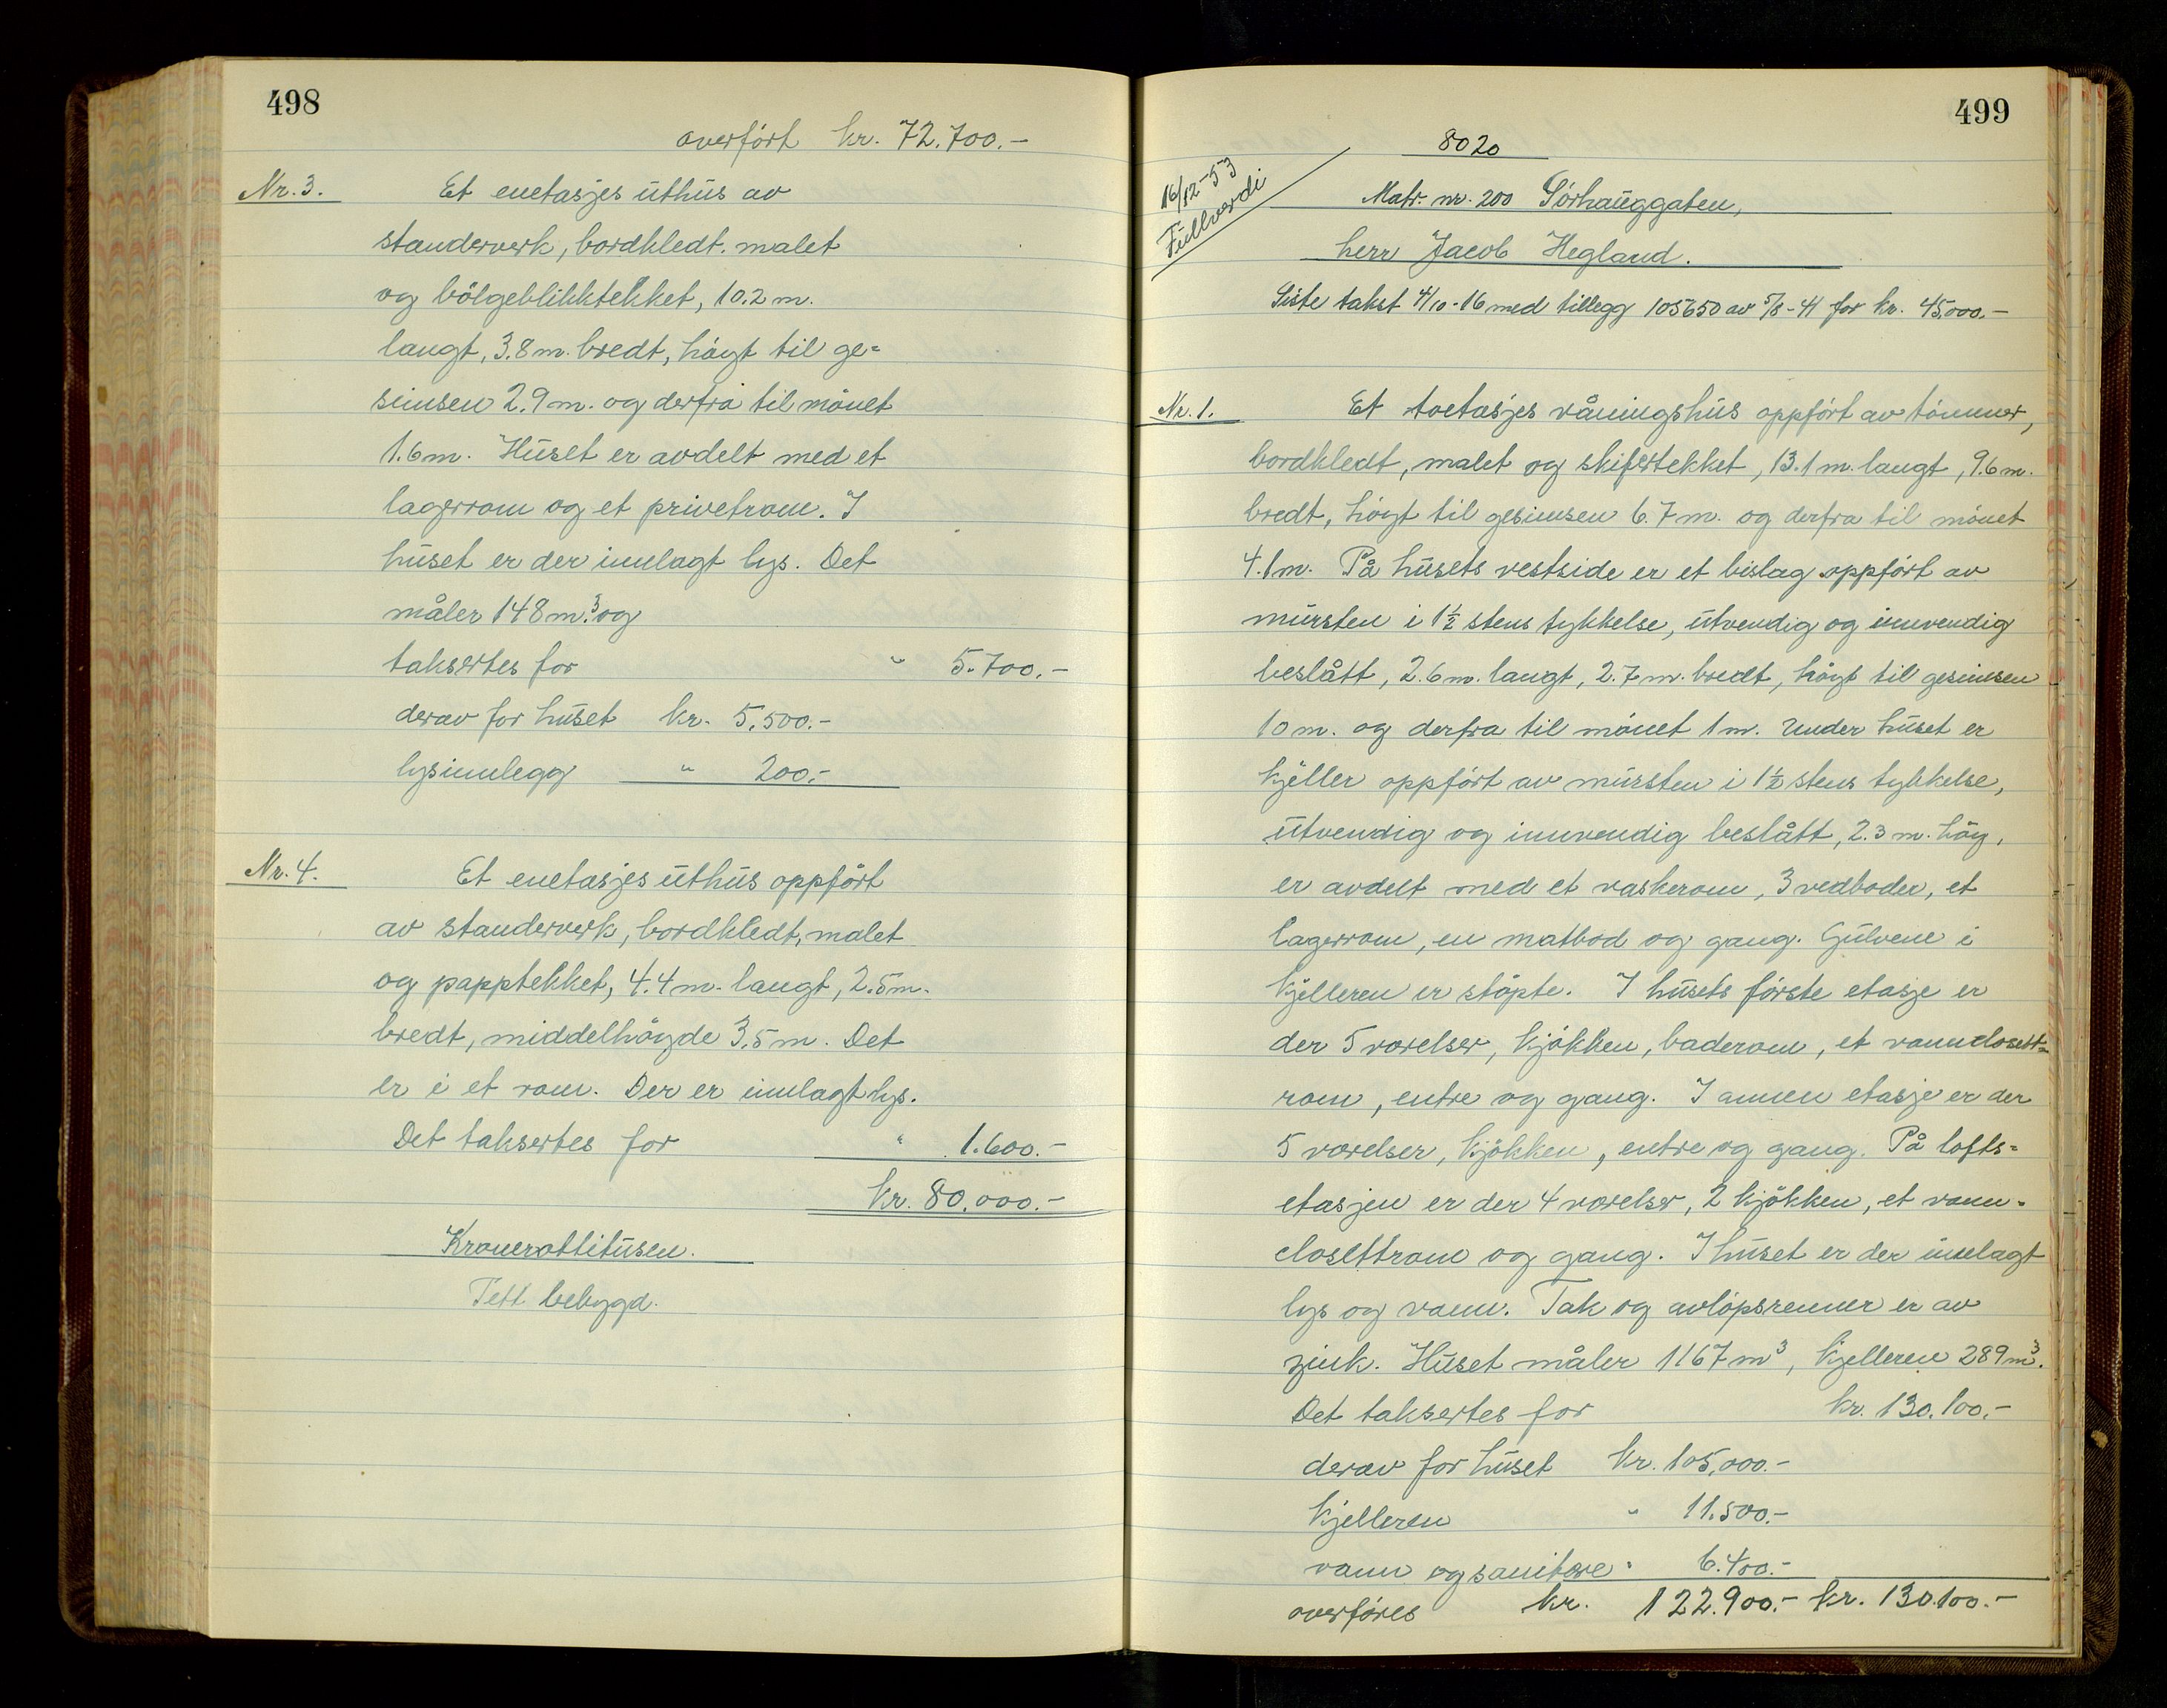 498
overført kr. 72.700.-
Nr. 3. Et enetasjes uthus av
standerverk, bordkledt. malet
og bølgeblikktekket, 10.2 m.
langt, 3.8 m. bredt, høgt til ge=
simsen 2.9 m. og derfra til mønet
1.6 m. Huset er avdelt med et
lagerrom og et privetrom. I
huset er der innlagt lys. Det
måler 148 m.³ og
taksertes for " 5.700.-
derav for huset kr. 5.500.-
lysinnlegg " 200.-
Nr. 4. Et enetasjes uthus oppført
av standerverk, bordkledt, malet
og papptekket, 4.4 m. langt, 2.5 m.
bredt, middelhøgde 3.5 m. Det
er i et rom. Der er innlagt lys.
Det taksertes for " 1.600.-
kr. 80.000.-
Tett bebygd.
499
8020
16/12-53
Fullverdi
Matr. nr. 200 Sørhauggaten,
herr Jacob Hegland.
Siste takst 4/10-16 med tillegg 105650 av 5/8-41 for kr. 45.000.-
Nr. 1. Et toetasjes våningshus oppført av tømmer,
bordkledt, malet og skifertekket, 13.1 m. langt, 9.6 m.
bredt, høgt til gesimsen 6.7 m. og derfra til mønet
4.1 m. På husets vestside er et bislag oppført av
mursten i 1½ stens tykkelse, utvendig og innvendig
beslått, 2.6 m. langt, 2.7 m. bredt, høgt til gesimsen
10 m. og derfra til mønet 1 m. Under huset er
kjeller oppført av mursten i 1½ stens tykkelse,
utvendig og innvendig beslått, 2.3 m. høg,
er avdelt med et vaskerom, 3 vedboder, et
lagerrom, en matbod og gang. Gulvene i
kjelleren er støpte. I husets første etasje er
der 5 værelser, kjøkken, baderom, et vannclosett=
rom, entre og gang. I annen etasje er der
5 værelser, kjøkken, entre og gang. På lofts=
etasjen er der 4 værelser, 2 kjøkken, et vann-
closettrom og gang. I huset er der innlagt
lys og vann. Tak og avløpsrenner er av
zink. Huset måler 1167 m³, kjelleren 289 m³.
Det taksertes for kr. 130.100.-
derav for huset kr. 105.000.-
kjelleren " 11.500.-
vann og sanitære " 6.400.-
overføres kr. 122.900.- kr. 130.100.-